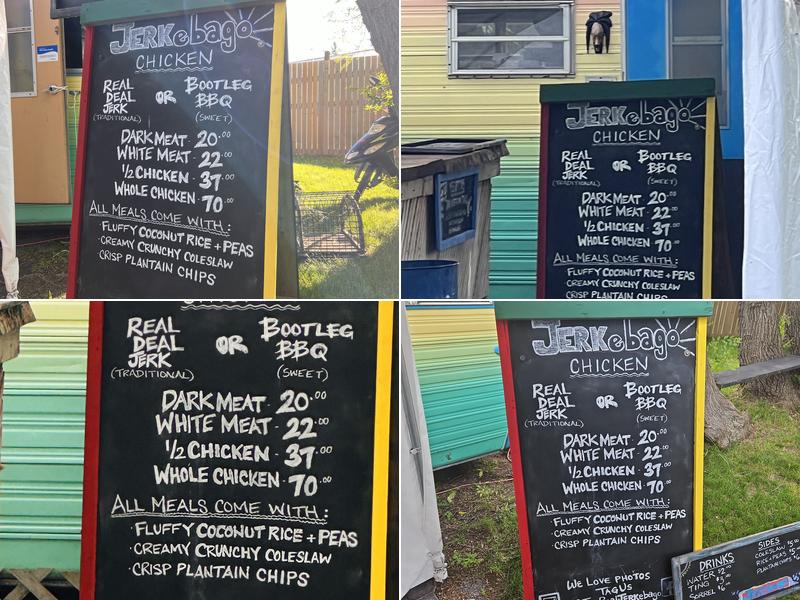 JERKebago
CHICKEN
REAL DEAL JERK
OR
BOOTLEG BBQ
(TRADITIONAL)
(SWEET)
DARK MEAT - 20.00
WHITE MEAT - 22.00
1/2 CHICKEN - 37.00
WHOLE CHICKEN - 70.00
ALL MEALS COME WITH:
· FLUFFY COCONUT RICE + PEAS
· CREAMY CRUNCHY COLESLAW
· CRISP PLANTAIN CHIPS
JERKebago
CHICKEN
REAL DEAL JERK
OR
BOOTLEG BBQ
(TRADITIONAL)
(SWEET)
DARK MEAT - 20.00
WHITE MEAT - 22.00
1/2 CHICKEN - 37.00
WHOLE CHICKEN - 70.00
ALL MEALS COME WITH:
· FLUFFY COCONUT RICE + PEAS
· CREAMY CRUNCHY COLESLAW
· CRISP PLANTAIN CHIPS
REAL DEAL JERK
OR
BOOTLEG BBQ
(TRADITIONAL)
(SWEET)
DARK MEAT - 20.00
WHITE MEAT - 22.00
1/2 CHICKEN - 37.00
WHOLE CHICKEN - 70.00
ALL MEALS COME WITH:
· FLUFFY COCONUT RICE + PEAS
· CREAMY CRUNCHY COLESLAW
· CRISP PLANTAIN CHIPS
JERKebago
CHICKEN
REAL DEAL JERK
OR
BOOTLEG BBQ
(TRADITIONAL)
(SWEET)
DARK MEAT - 20.00
WHITE MEAT - 22.00
1/2 CHICKEN - 37.00
WHOLE CHICKEN - 70.00
ALL MEALS COME WITH:
· FLUFFY COCONUT RICE + PEAS
· CREAMY CRUNCHY COLESLAW
· CRISP PLANTAIN CHIPS
WE LOVE PHOTOS
TAG US
DRINKS
WATER $2
TING $3
SORREL $6
SIDES
COLESLAW
RICE + PEAS
PLANTAIN CHIPS